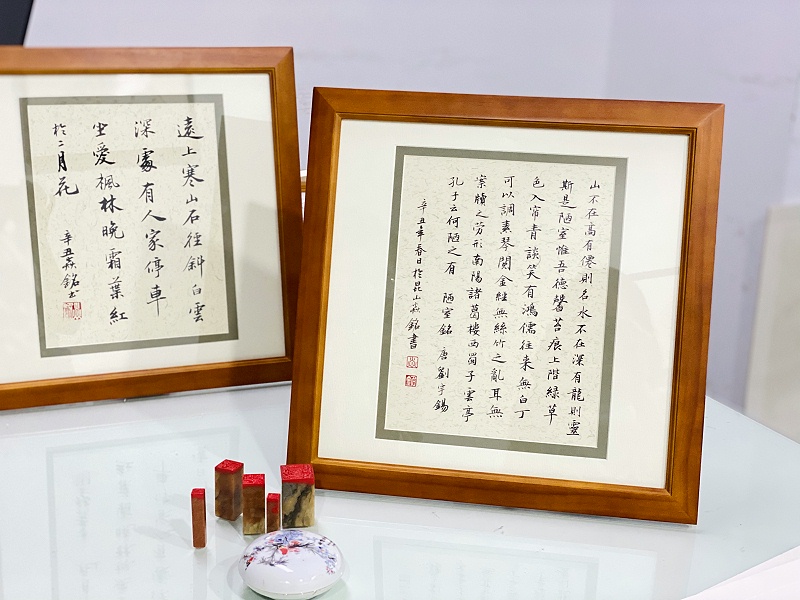 遠上寒山石徑斜白雲
深處有人家停車
坐愛楓林晚霜葉紅
於二月花
辛丑焱銘书
山不在高有僊則名水不在深有龍則靈
斯是陋室惟吾德馨苔痕上階緑草
色入帘青談笑有鴻儒往来無白丁
可以調素琴閱金經無絲竹之亂耳無
案牘之勞形南陽諸葛樓西蜀子雲亭
孔子云何陋之有 陋室銘 唐 劉宇錫
辛丑年春日於昆山焱銘書